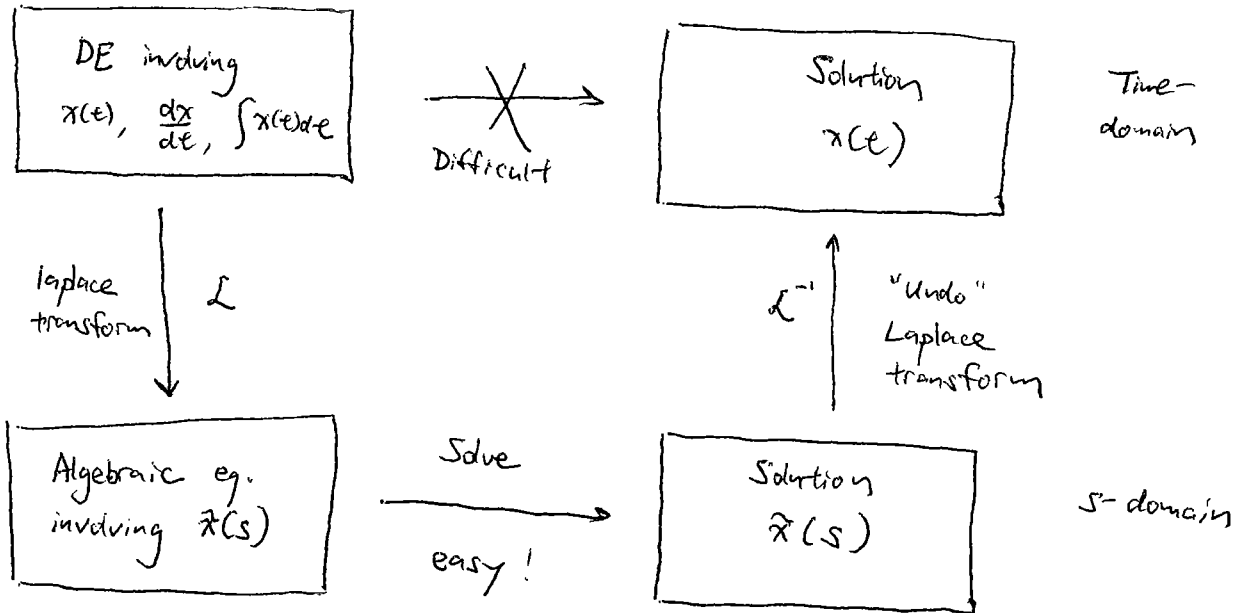 DE involving
x(t), dx/dt, ∫x(t)dt
Difficult
Solution
x(t)
Time-
domain
laplace
transform
ℒ
ℒ⁻¹
"Undo"
Laplace
transform
Algebraic eq.
involving x̃(s)
Solve
easy!
Solution
x̃(s)
s-domain